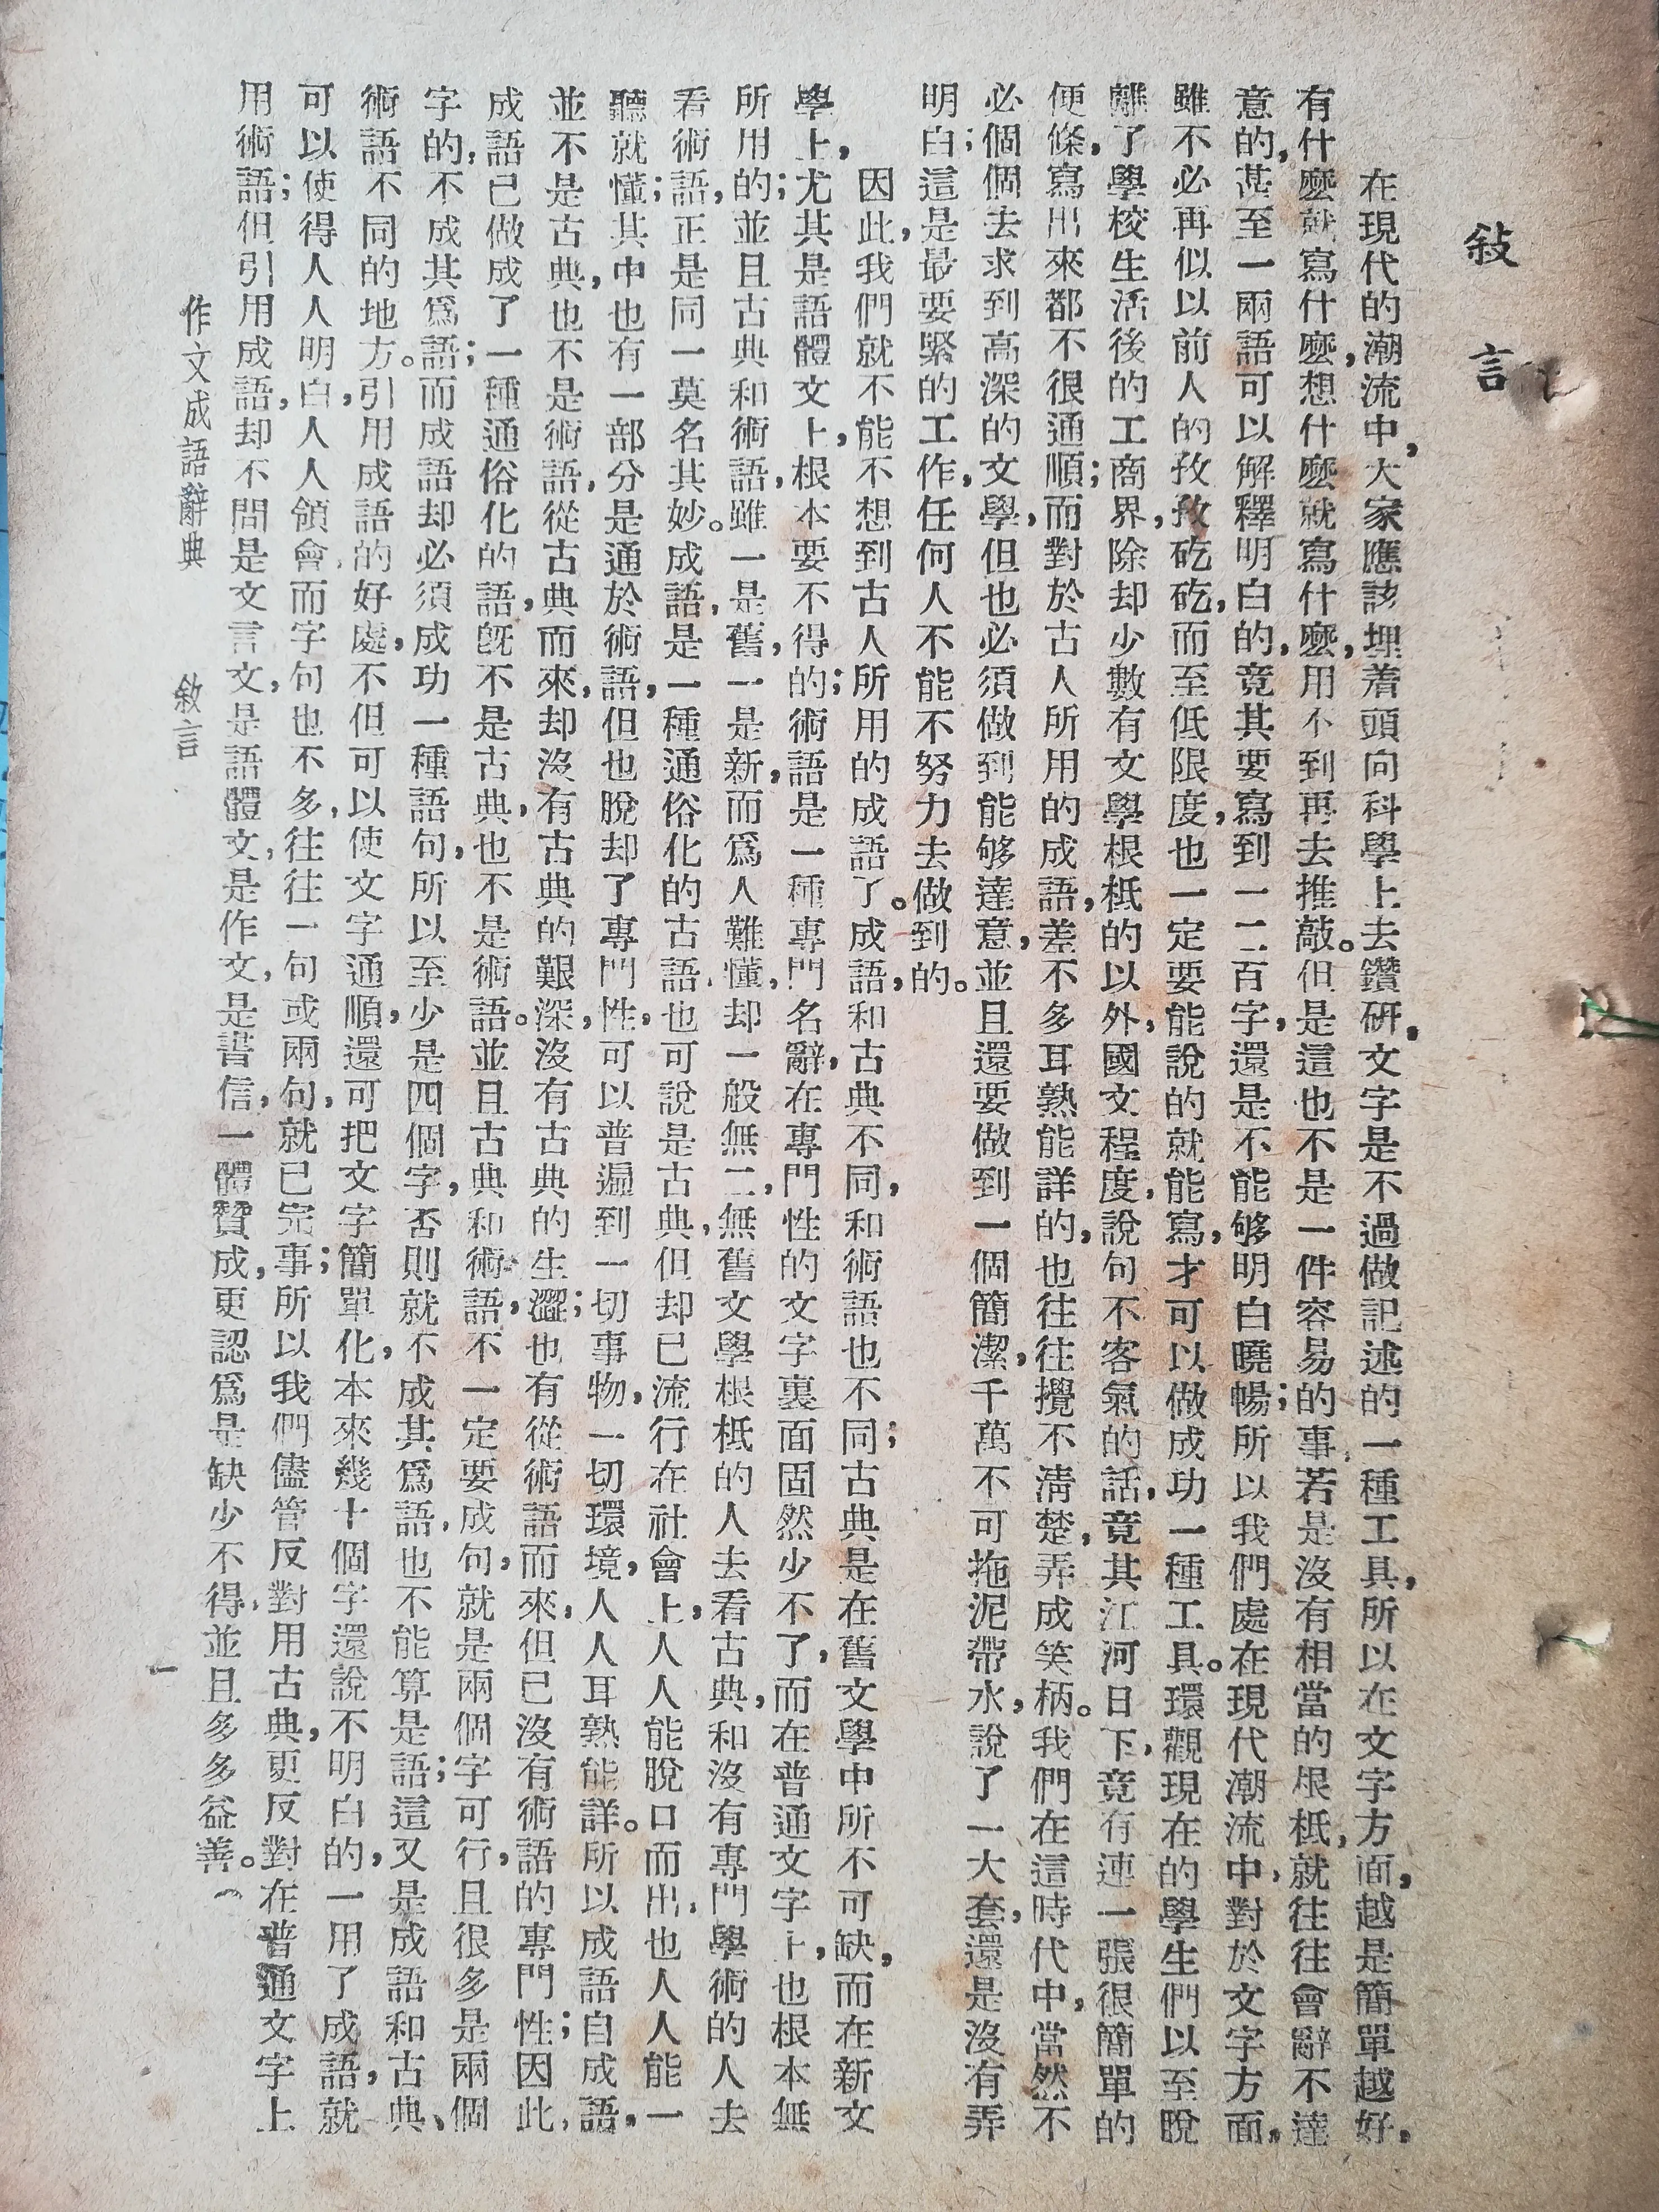 敍言
在現代的潮流中，大家應該埋着頭向科學上去鑽研，文字是不過做記述的一種工具，所以在文字方面，越是簡單越好，
有什麼就寫什麼，想什麼就寫什麼，用不到再去推敲。但是這也不是一件容易的事，若是沒有相當的根柢，就往往會辭不達
意的，甚至一兩語可以解釋明白的，竟其要寫到一二百字，還是不能够明白曉暢；所以我們處在現代潮流中，對於文字方面，
雖不必再似以前人的孜孜矻矻，而至低限度，也一定要能說的就能寫，才可以做成功一種工具。環觀現在的學生們以至脫
離了學校生活後的工商界，除却少數有文學根柢的以外，國文程度，說句不客氣的話，竟其江河日下，竟有連一張很簡單的
便條，寫出來都不很通順；而對於古人所用的成語，差不多耳熟能詳的，也往往攪不清楚，弄成笑柄。我們在這時代中，當然不
必個個去求到高深的文學，但也必須做到能够達意，並且還要做到一個簡潔，千萬不可拖泥帶水，說了一大套，還是沒有弄
明白；這是最要緊的工作，任何人不能不努力去做到的。
因此，我們就不能不想到古人所用的成語了。成語，和古典不同，和術語也不同；古典是在舊文學中所不可缺，而在新文
學上，尤其是語體文上，根本要不得的；術語是一種專門名辭，在專門性的文字裏面固然少不了，而在普通文字上，也根本無
所用的；並且古典和術語，雖一是舊，一是新，而爲人難懂，却一般無二，無舊文學根柢的人去看古典，和沒有專門學術的人去
看術語，正是同一莫名其妙。成語，是一種通俗化的古語，也可說是古典，但却已流行在社會上，人人能脫口而出，也人人能一
聽就懂；其中也有一部分是通於術語，但也脫却了專門性，可以普遍到一切事物，一切環境，人人耳熟能詳。所以成語自成語，
並不是古典，也不是術語，從古典而來，却沒有古典的艱深，沒有古典的生澀；也有從術語而來，但已沒有術語的專門性；因此，
成語已做成了一種通俗化的語，旣不是古典，也不是術語。並且古典和術語，不一定要成句，就是兩個字可行，且很多是兩個
字的，不成其爲語；而成語却必須成功一種語句，所以至少是四個字，否則就不成其爲語，也不能算是語；這又是成語和古典、
術語不同的地方。引用成語的好處，不但可以使文字通順，還可把文字簡單化，本來幾十個字還說不明白的，一用了成語，就
可以使得人人明白，人人領會，而字句也不多，往往一句或兩句，就已完事；所以我們儘管反對用古典，更反對在普通文字上
用術語；但引用成語，却不問是文言文，是語體文，是作文，是書信，一體贊成，更認爲是缺少不得，並且多多益善。（
作文成語辭典　敍言
一